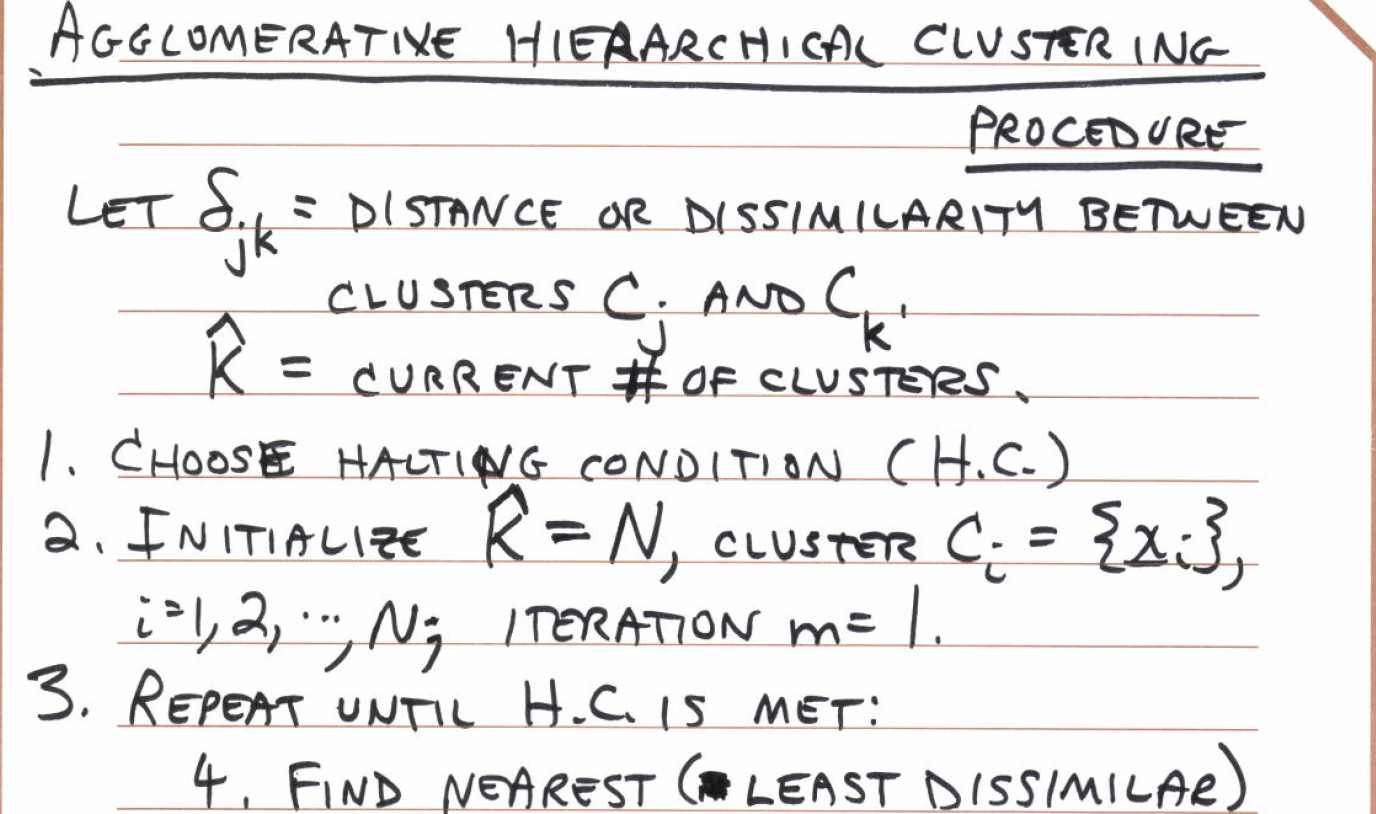 AGGLOMERATIVE HIERARCHICAL CLUSTERING
PROCEDURE
LET δjk = DISTANCE OR DISSIMILARITY BETWEEN
CLUSTERS Cj AND Ck.
K̂ = CURRENT # OF CLUSTERS.
1. CHOOSE HALTING CONDITION (H.C.)
2. INITIALIZE K̂ = N, CLUSTER Ci = {x̲i},
i=1,2,...,N; ITERATION m=1.
3. REPEAT UNTIL H.C. IS MET:
4. FIND NEAREST (LEAST DISSIMILAR)